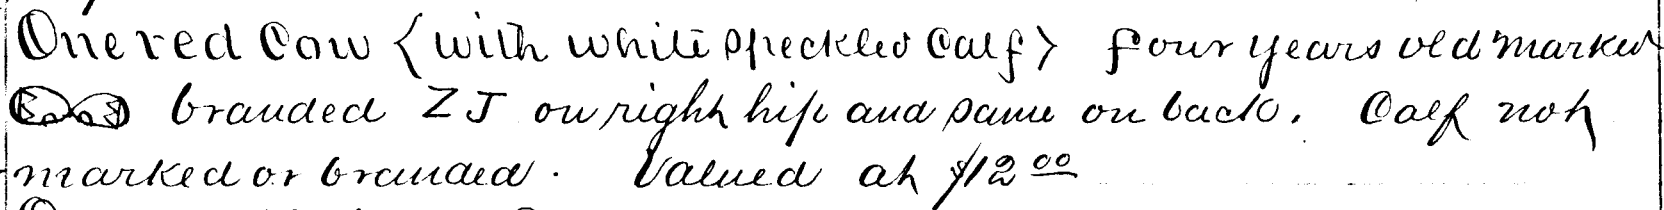 One red Cow (with white speckled Calf) four years old marked
branded ZJ on right hip and same on back. Calf not
marked or branded. Valued at $12 00